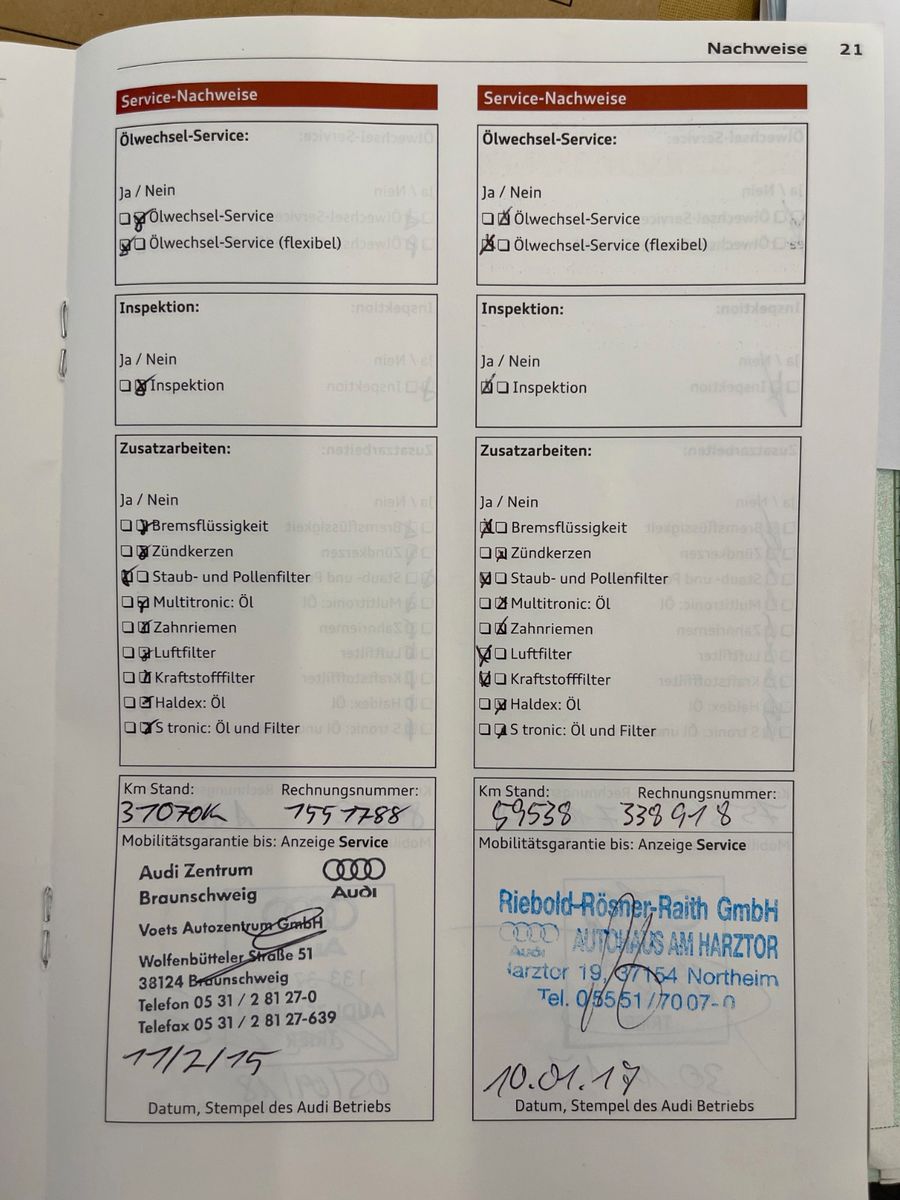 Nachweise 21
Service-Nachweise
Ölwechsel-Service:
Ja / Nein
Ölwechsel-Service
Ölwechsel-Service (flexibel)
Inspektion:
Ja / Nein
Inspektion
Zusatzarbeiten:
Ja / Nein
Bremsflüssigkeit
Zündkerzen
Staub- und Pollenfilter
Multitronic: Öl
Zahnriemen
Luftfilter
Kraftstofffilter
Haldex: Öl
S tronic: Öl und Filter
Km Stand: Rechnungsnummer:
31070km 1551788
Mobilitätsgarantie bis: Anzeige Service
Audi Zentrum
Braunschweig
Audi
Voets Autozentrum GmbH
Wolfenbütteler Straße 51
38124 Braunschweig
Telefon 05 31 / 2 81 27-0
Telefax 05 31 / 2 81 27-639
11/2/15
Datum, Stempel des Audi Betriebs
Service-Nachweise
Ölwechsel-Service:
Ja / Nein
Ölwechsel-Service
Ölwechsel-Service (flexibel)
Inspektion:
Ja / Nein
Inspektion
Zusatzarbeiten:
Ja / Nein
Bremsflüssigkeit
Zündkerzen
Staub- und Pollenfilter
Multitronic: Öl
Zahnriemen
Luftfilter
Kraftstofffilter
Haldex: Öl
S tronic: Öl und Filter
Km Stand: Rechnungsnummer:
59538 338918
Mobilitätsgarantie bis: Anzeige Service
Riebold-Rösner-Raith GmbH
Audi AUTOHAUS AM HARZTOR
arztor 19, 37154 Northeim
Tel. 05551/7007-0
10.01.17
Datum, Stempel des Audi Betriebs